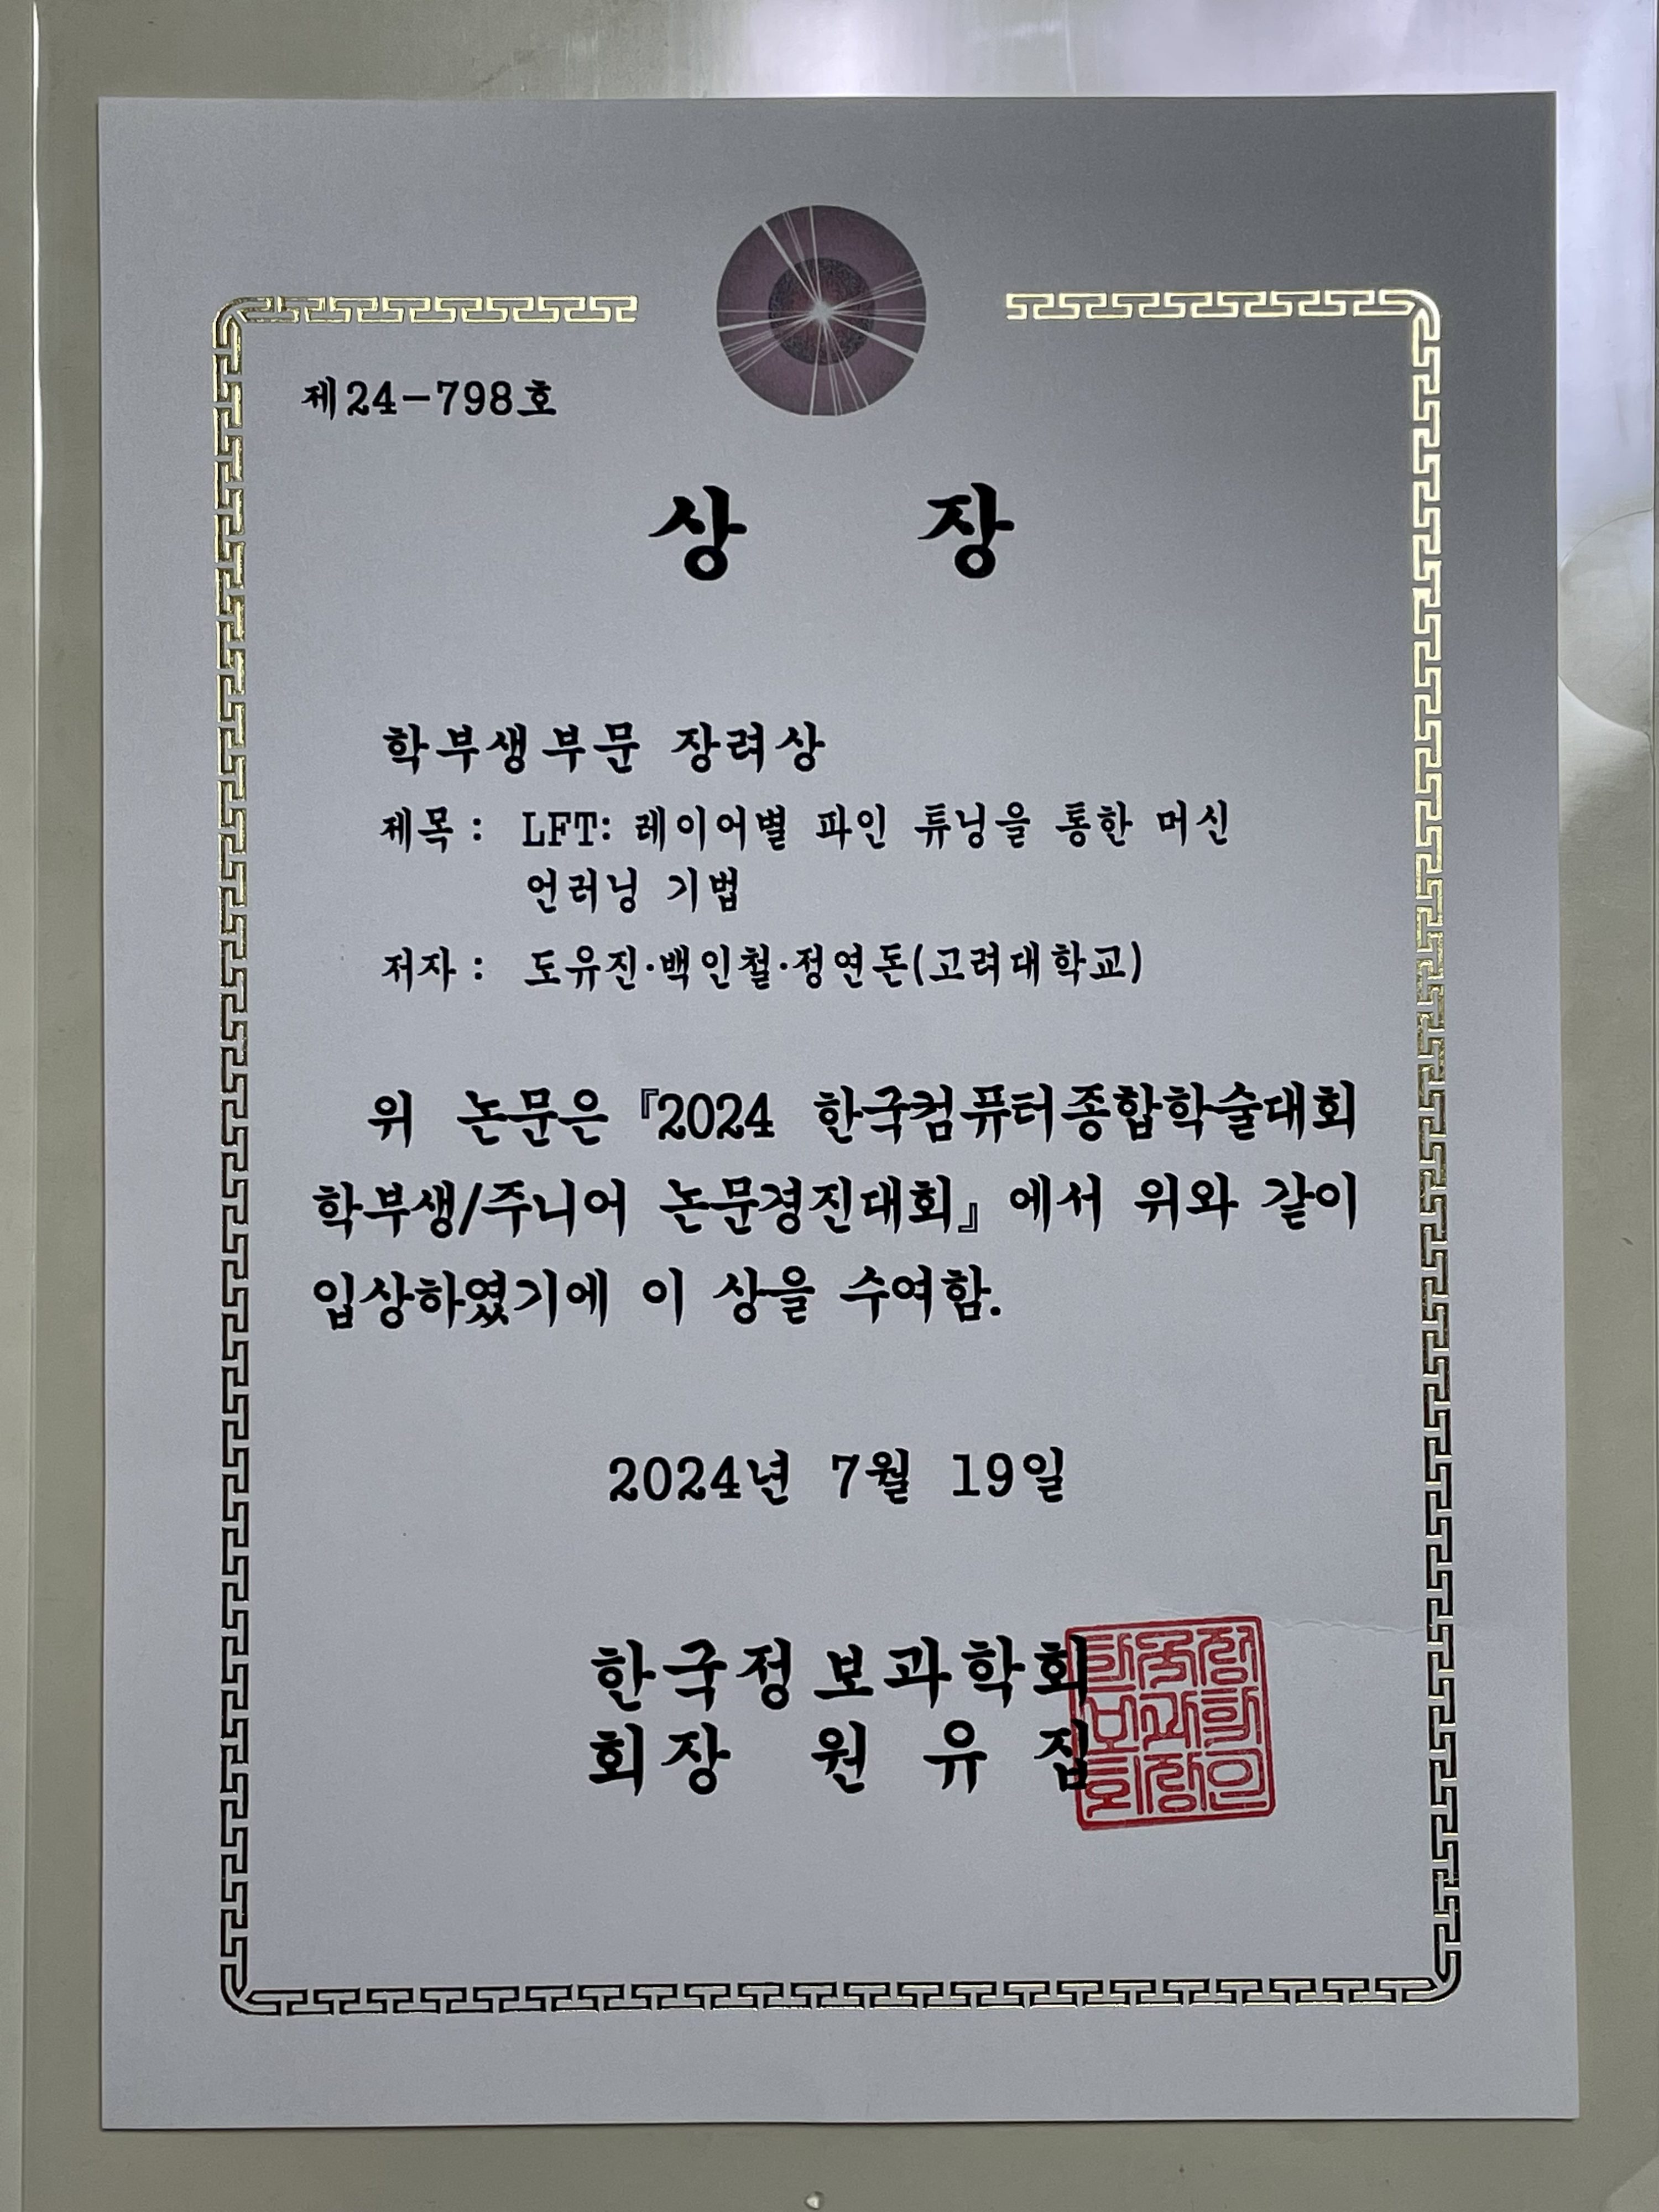 제24-798호
상 장
학부생부문 장려상
제목 : LFT: 레이어별 파인 튜닝을 통한 머신
언러닝 기법
저자 : 도유진·백인철·정연돈(고려대학교)
위 논문은 『2024 한국컴퓨터종합학술대회
학부생/주니어 논문경진대회』에서 위와 같이
입상하였기에 이 상을 수여함.
2024년 7월 19일
한국정보과학회
회장 원 유 집
한국정
보과학
회장인